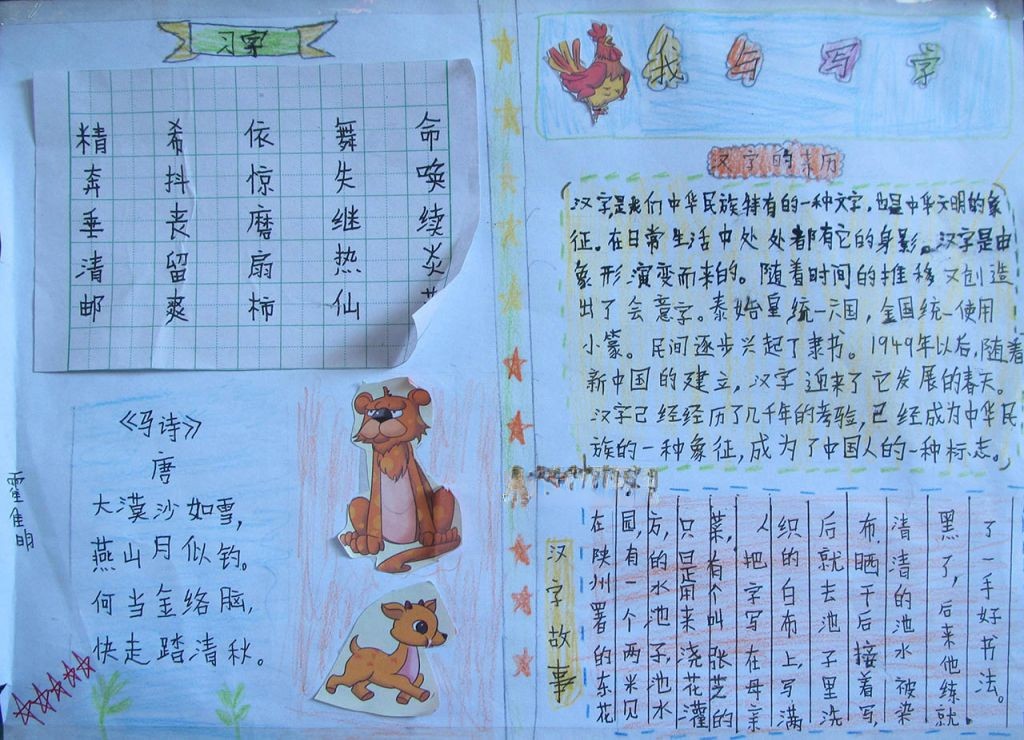 习字
精 希 依 舞 命
奔 抖 惊 失 唤
垂 丧 磨 继 续
清 留 扇 热 炎
邮 爽 柿 仙
《马诗》
唐
大漠沙如雪,
燕山月似钓。
何当金络脑,
快走踏清秋。
我与写字
汉字的来历
汉字是我们中华民族特有的一种文字,也是中华文明的象
征。在日常生活中处处都有它的身影。汉字是由
象形演变而来的。随着时间的推移又创造
出了会意字。秦始皇统一六国,全国统一使用
小篆。民间逐步兴起了隶书。1949年以后,随着
新中国的建立,汉字迎来了它发展的春天。
汉字已经经历了几千年的考验,已经成为中华民
族的一种象征,成为了中国人的一种标志。
汉字故事
在陕州署的东花
园,有一个两米见
方,的水池子,池水
只是用来浇花灌
菜,有个叫张芝的
人把字写在母亲
织的白布上,写满
后就去池子里洗
布,晒干后接着写,
清清的池水被染
黑了,后来他练就
了一手好书法。